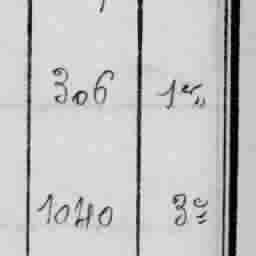 306 1er
1040 3e